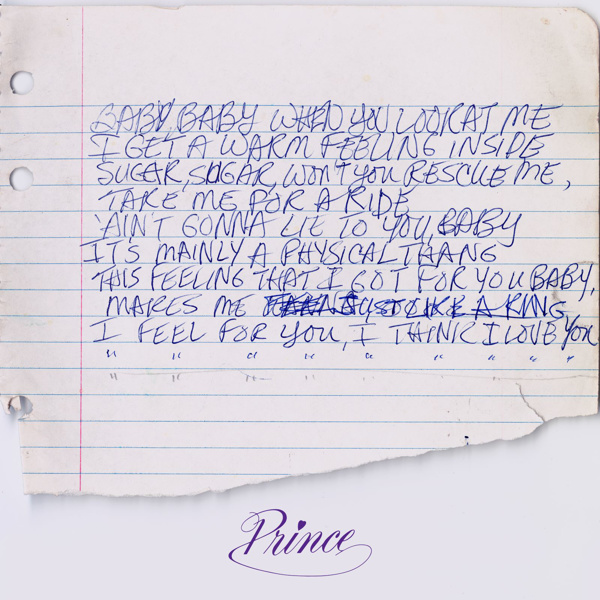 BABY, BABY WHEN YOU LOOK AT ME
I GET A WARM FEELING INSIDE
SUGAR, SUGAR, WON'T YOU RESCUE ME,
TAKE ME FOR A RIDE
'AIN'T GONNA LIE TO YOU, BABY
IT'S MAINLY A PHYSICAL THANG
THIS FEELING THAT I GOT FOR YOU BABY,
MAKES ME JUST LIKE A KING
I FEEL FOR YOU, I THINK I LOVE YOU
" " " " " " " " "
" " " " " "
Prince